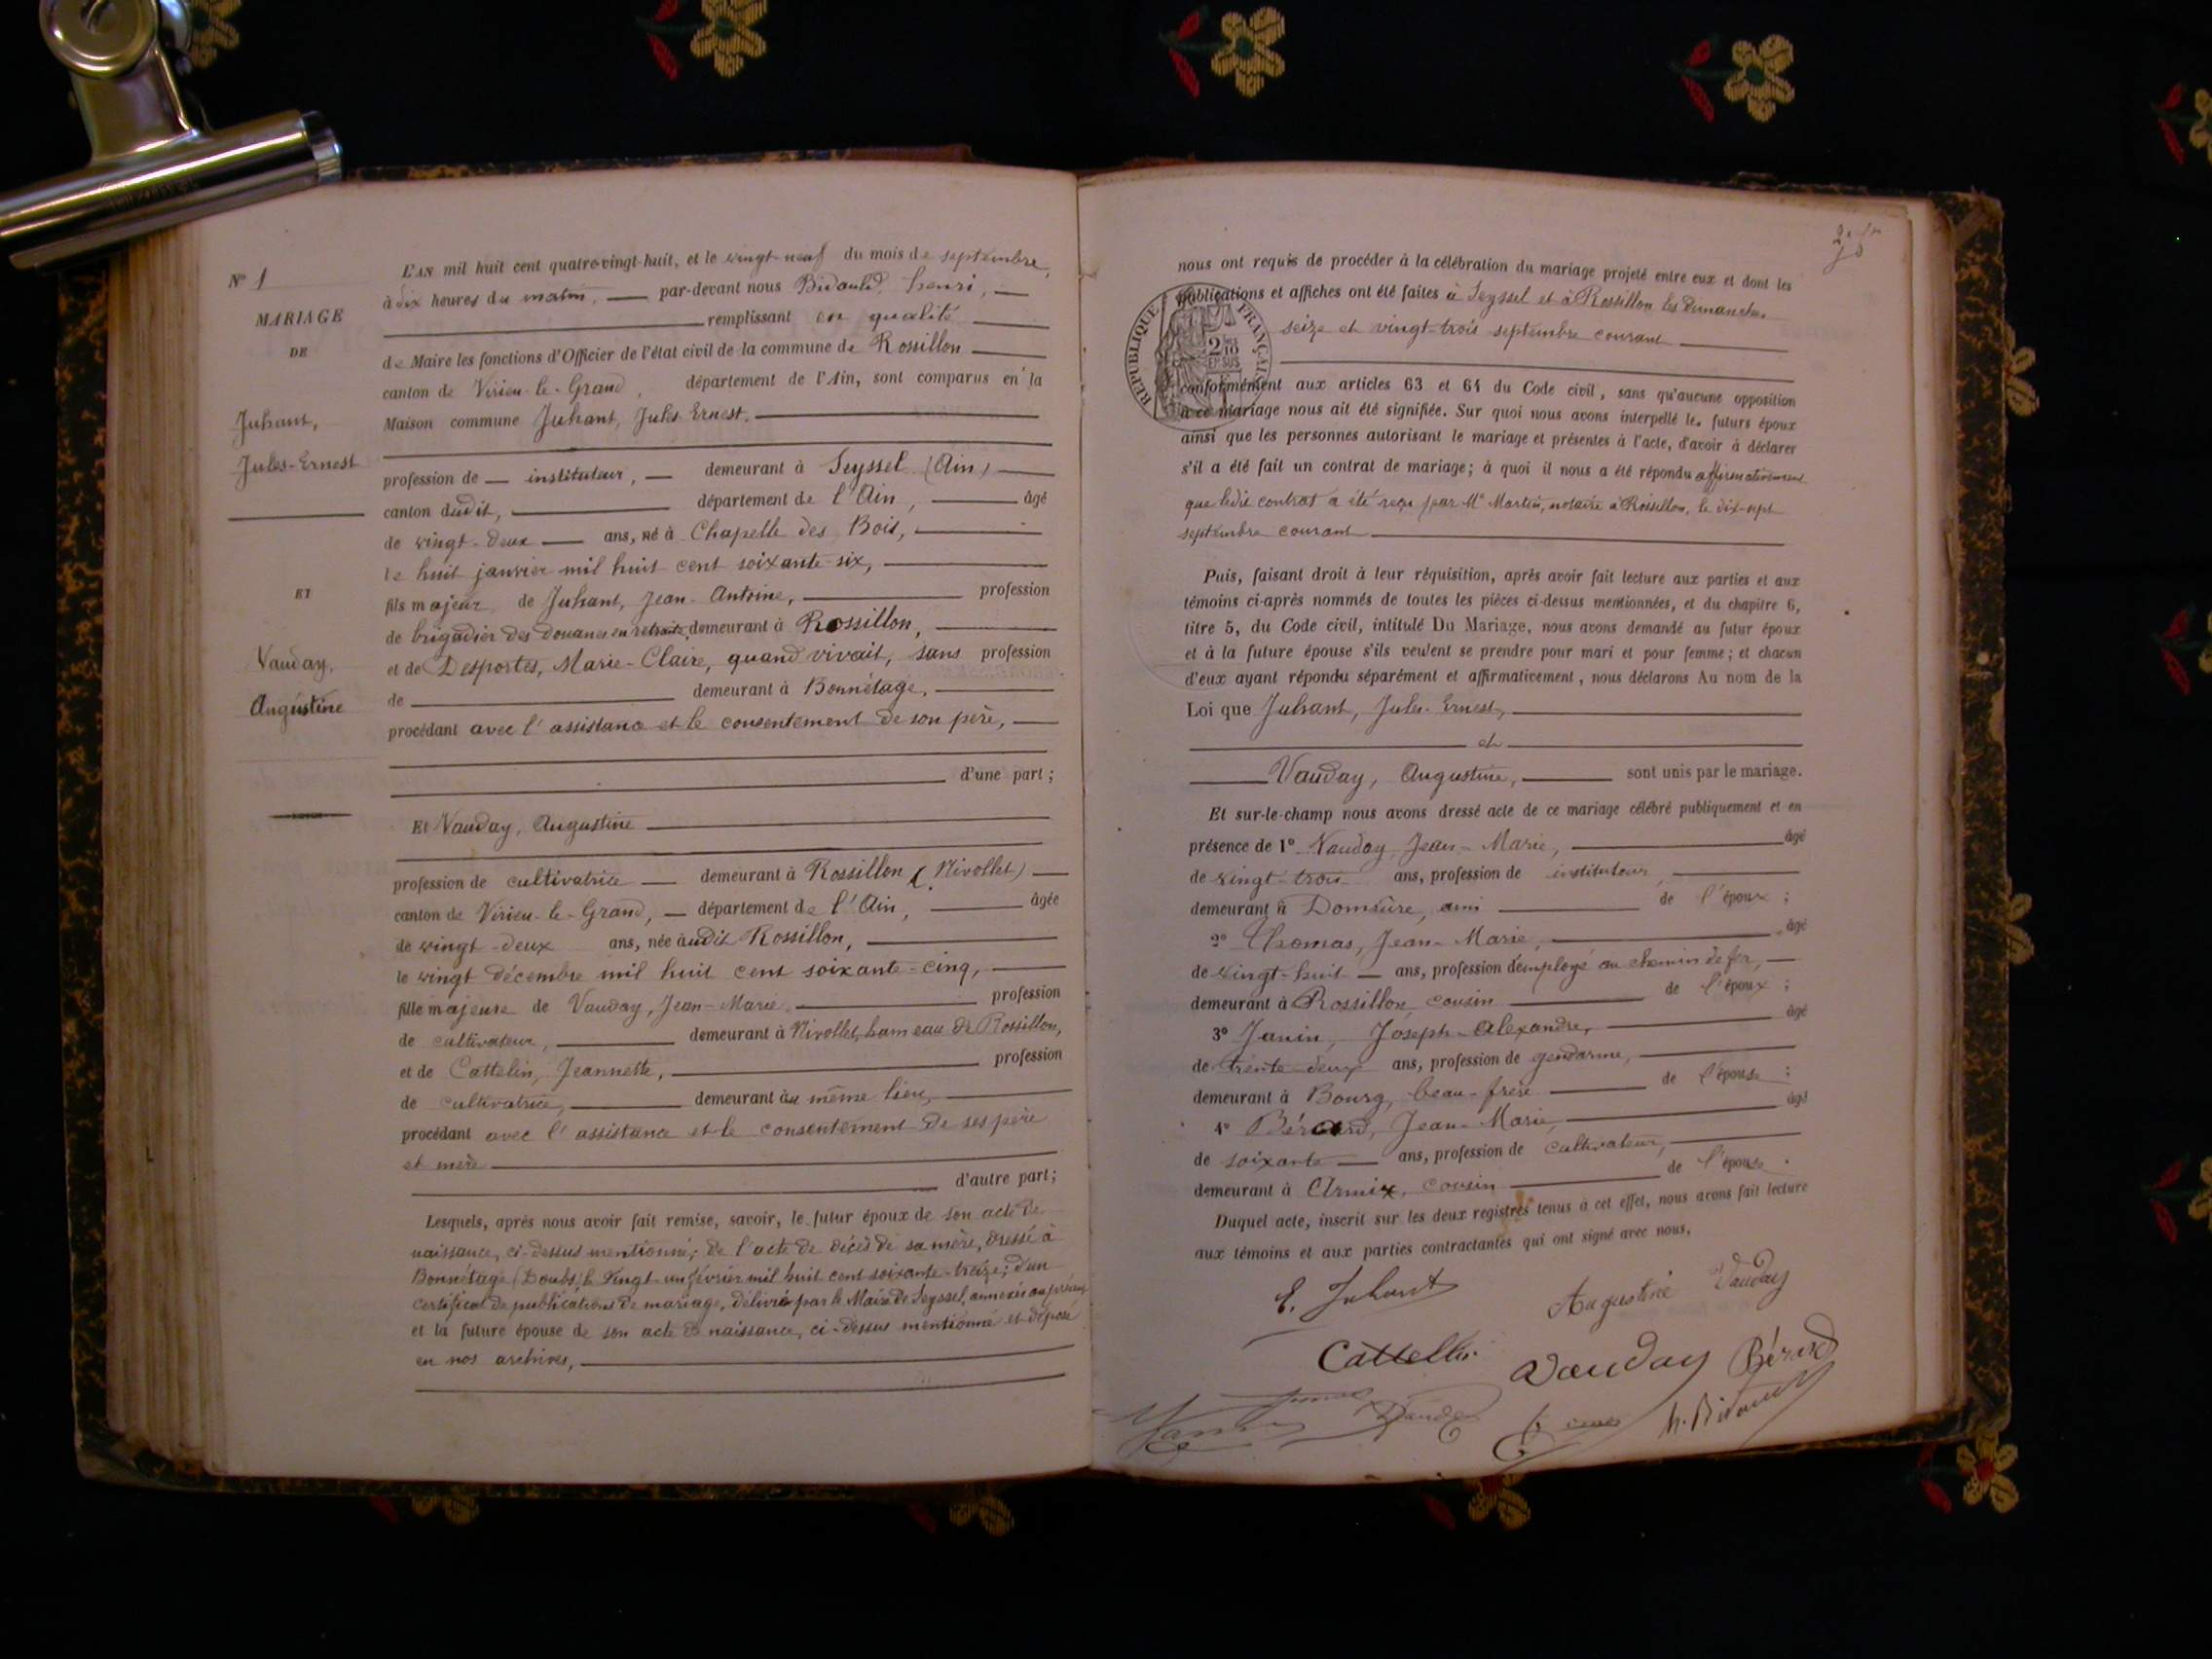 N° 1
MARIAGE
DE
Juhant,
Jules-Ernest
ET
Vauday,
Augustine
L'AN mil huit cent quatre-vingt-huit, et le vingt-neuf du mois de septembre,
à dix heures du matin, par-devant nous Bidauld, henri,
remplissant en qualité
de Maire les fonctions d'Officier de l'état civil de la commune de Rossillon
canton de Virieu-le-Grand, département de l'Ain, sont comparus en la
Maison commune Juhant, Jules Ernest.
profession de instituteur, demeurant à Seyssel (Ain)
canton dudit, département de l'Ain, âgé
de vingt-deux ans, né à Chapelle des Bois,
le huit janvier mil huit cent soixante-six,
fils majeur de Juhant, Jean-Antoine, profession
de brigadier des douanes en retraite, demeurant à Rossillon,
et de Desportes, Marie-Claire, quand vivait, sans profession
de demeurant à Bonnétage,
procédant avec l'assistance et le consentement de son père,
d'une part;
Et Vauday, Augustine
profession de cultivatrice demeurant à Rossillon (Nivollet)
canton de Virieu-le-Grand, département de l'Ain, âgée
de vingt-deux ans, née audit Rossillon,
le vingt décembre mil huit cent soixante-cinq,
fille majeure de Vauday, Jean-Marie profession
de cultivateur, demeurant à Nivollet, hameau de Rossillon,
et de Cattelin, Jeannette, profession
de cultivatrice, demeurant au même lieu,
procédant avec l'assistance et le consentement de ses père
et mère
d'autre part;
Lesquels, après nous avoir fait remise, savoir, le futur époux de son acte de
naissance, ci-dessus mentionné; de l'acte de décès de sa mère, dressé à
Bonnétage (Doubs) le Vingt-un février mil huit cent soixante-treize; d'un
certificat de publications de mariage, délivré par le Maire de Seyssel, annexés au présent
et la future épouse de son acte de naissance, ci-dessus mentionné et déposé
en nos archives,
nous ont requis de procéder à la célébration du mariage projeté entre eux et dont les
publications et affiches ont été faites à Seyssel et à Rossillon les dimanches
seize et vingt-trois septembre courant
RÉPUBLIQUE FRANÇAISE
2/10
EN SUS
conformément aux articles 63 et 64 du Code civil, sans qu'aucune opposition
à ce mariage nous ait été signifiée. Sur quoi nous avons interpellé les futurs époux
ainsi que les personnes autorisant le mariage et présentes à l'acte, d'avoir à déclarer
s'il a été fait un contrat de mariage; à quoi il nous a été répondu affirmativement
que ledit contrat a été reçu par Me Martin, notaire à Rossillon, le dix-sept
septembre courant
Puis, faisant droit à leur réquisition, après avoir fait lecture aux parties et aux
témoins ci-après nommés de toutes les pièces ci-dessus mentionnées, et du chapitre 6,
titre 5, du Code civil, intitulé Du Mariage, nous avons demandé au futur époux
et à la future épouse s'ils veulent se prendre pour mari et pour femme; et chacun
d'eux ayant répondu séparément et affirmativement, nous déclarons Au nom de la
Loi que Juhant, Jules-Ernest,
et
Vauday, Augustine, sont unis par le mariage.
Et sur-le-champ nous avons dressé acte de ce mariage célébré publiquement et en
présence de 1° Vauday, Jean-Marie, âgé
de vingt-trois ans, profession de instituteur,
demeurant à Domsûre, ami de l'époux;
2° Thomas, Jean-Marie, âgé
de vingt-huit ans, profession d'employé au chemin de fer,
demeurant à Rossillon, cousin de l'époux;
3° Janin, Joseph-Alexandre, âgé
de trente-deux ans, profession de gendarme,
demeurant à Bourg, beau-frère de l'épouse;
4° Bérard, Jean-Marie, âgé
de soixante ans, profession de cultivateur,
demeurant à Armix, cousin de l'épouse.
Duquel acte, inscrit sur les deux registres tenus à cet effet, nous avons fait lecture
aux témoins et aux parties contractantes qui ont signé avec nous,
E. Juhant Augustine Vauday
Cattelin Vauday Bérard
h. Bidauld